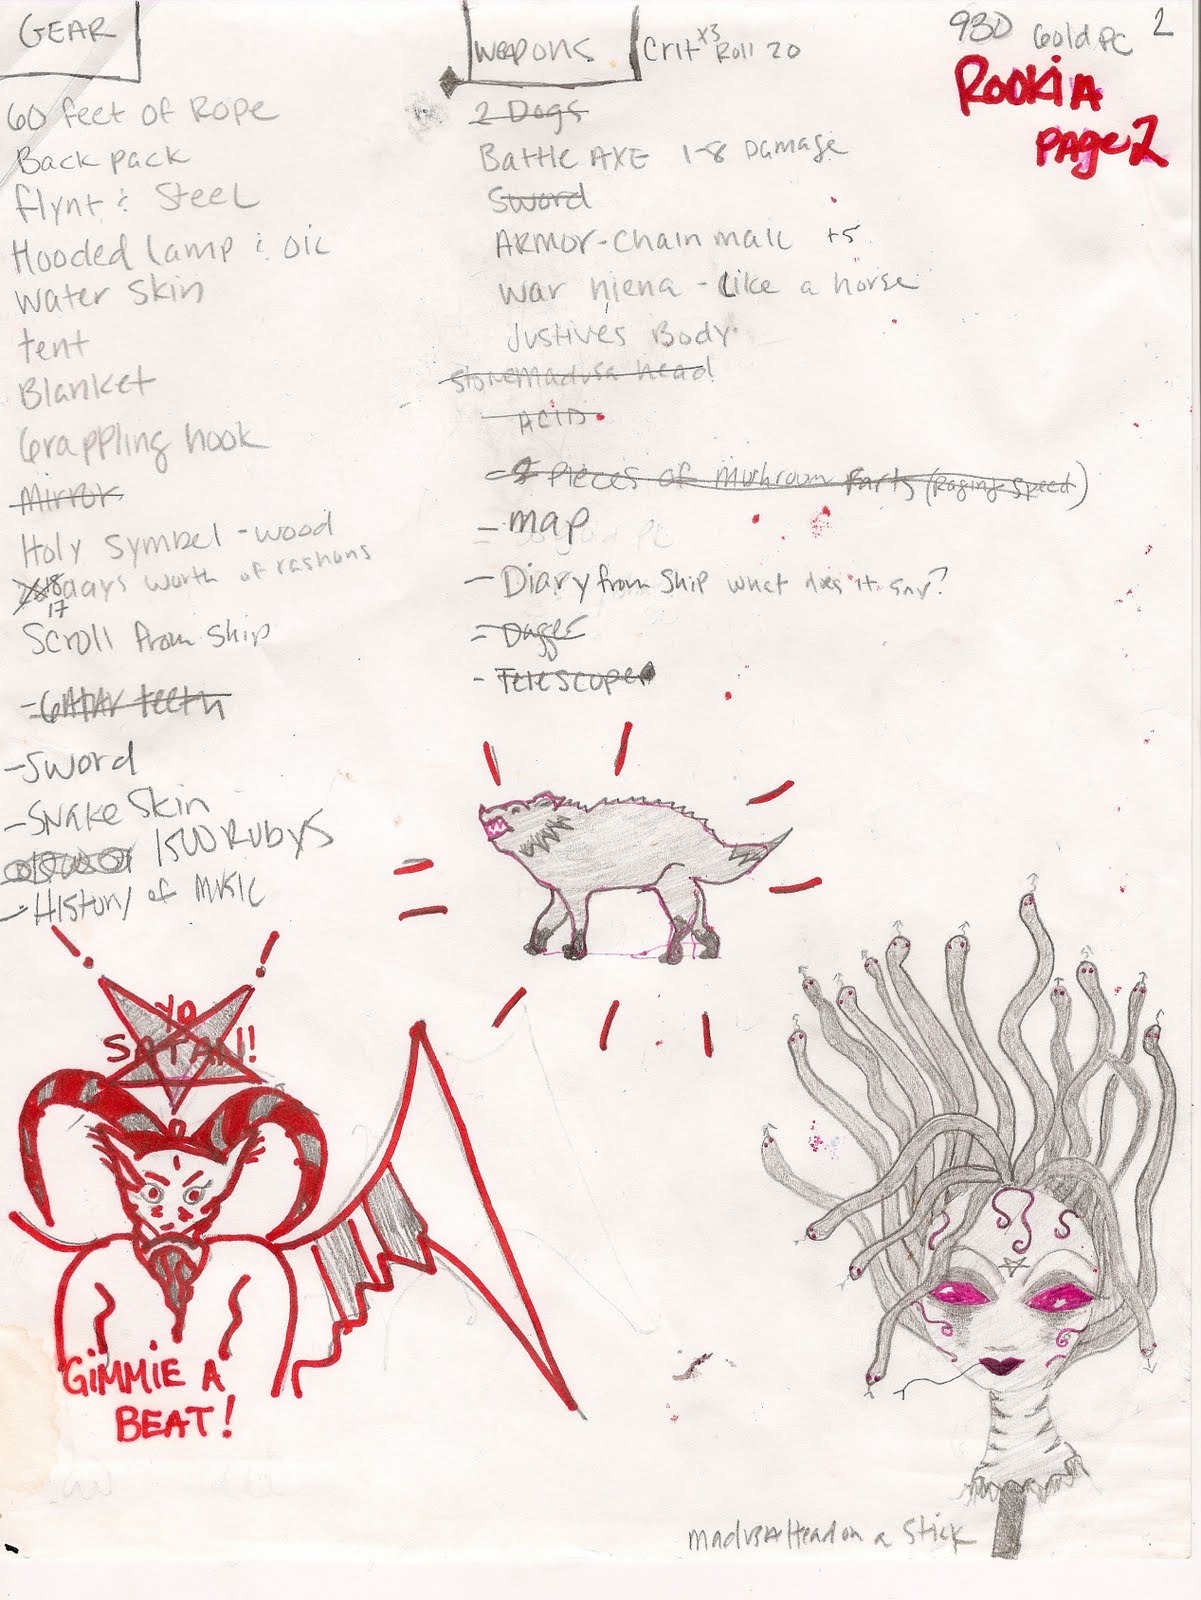 GEAR
60 feet of Rope
Back pack
flynt & Steel
Hooded lamp & oil
Water Skin
tent
Blanket
Grappling hook
Mirror
Holy Symbel - wood
18 days worth of rashons
17
Scroll from Ship
- GATAR teeth
- Sword
- Snake Skin
1500 Rubys
- History of Music
WEAPONS
Crit x3 Roll 20
2 Dogs
Battle AXE 1-8 Damage
Sword
ARMOR - Chain mail +5
War hiena - Like a horse
Justives Body
stone madusa head
- ACID
- 8 Pieces of Mushroom Parts (Raging Speed)
- map
- Diary from Ship what does it say?
- Dagger
- Telescope
930 Gold PC
2
ROOKIA
PAge 2
YO
SATAN!
GiMMiE A
BEAT!
madusA Head on a Stick